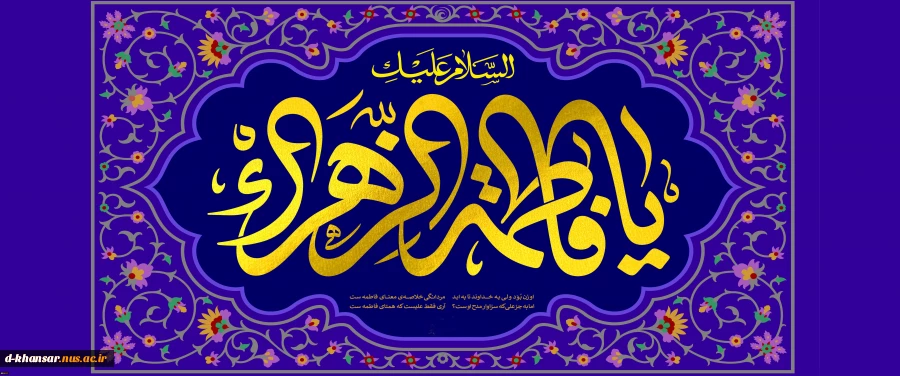 السَّلامُ عَلَیْكِ
یا فاطمة الزهراء
او زن بُوَد ولی به خداوند تا به ابد مردانگی خلاصه‌ی معنای فاطمه ست
اما به جز علی که سزاوار مدح اوست؟ آری فقط علیست که همتای فاطمه ست
d-khansar.nus.ac.ir